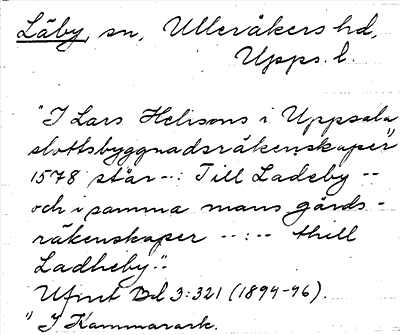 Läby, sn, Ulleråkers hd,
Upps. l.
"I Lars Helisons i Uppsala
slottsbyggnadsräkenskaper"
1578 står --: Till Ladeby --
och i samma mans gårds-
räkenskaper --:-- thill
Ladheby".
Ufmt Bd 3:321 (1894-96).
") I Kammarark.